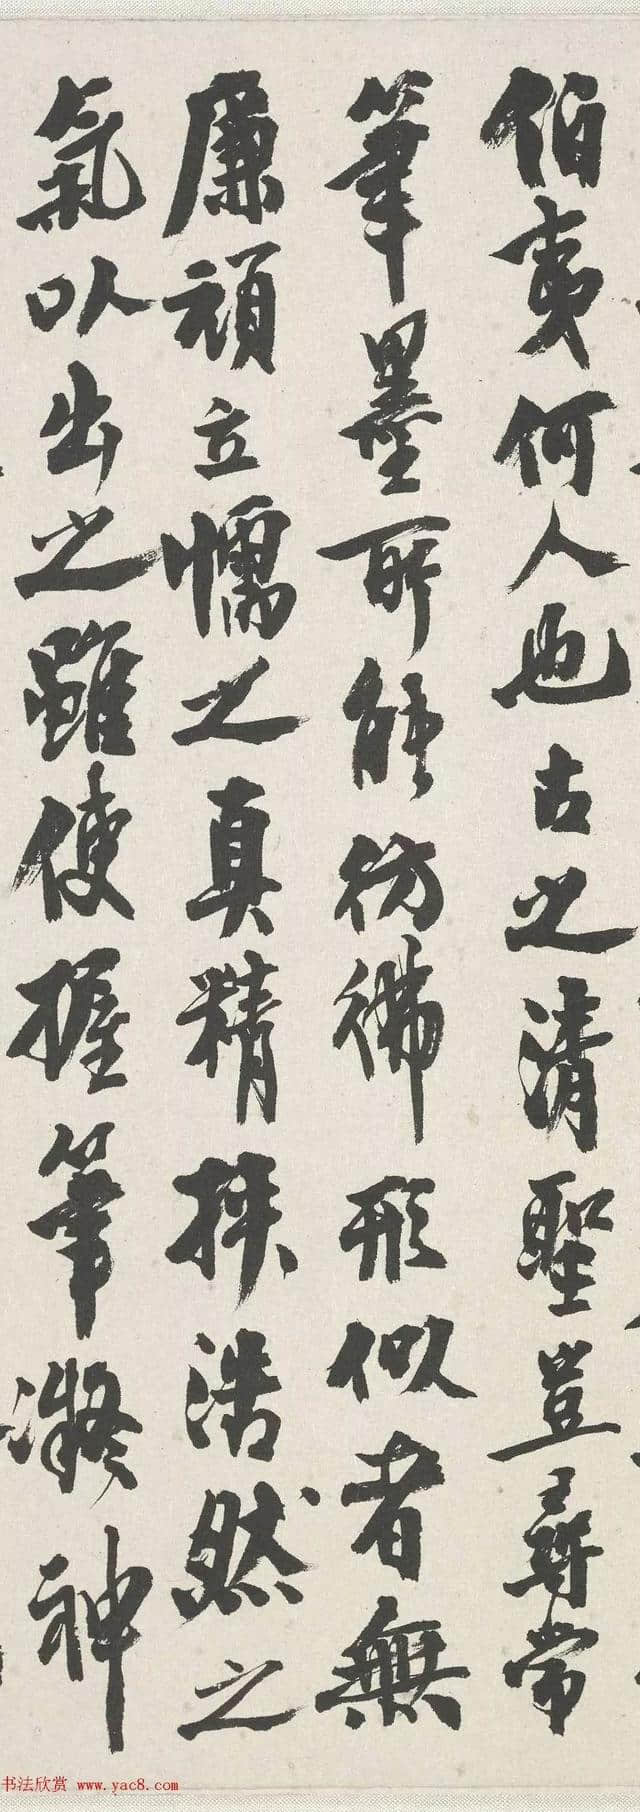 伯夷何人也古之清聖豈尋常
筆墨所能彷彿形似者無
廉頑立懦之真精挾浩然之
氣以出之雖使握筆凝神
书法欣赏 www.yac8.com